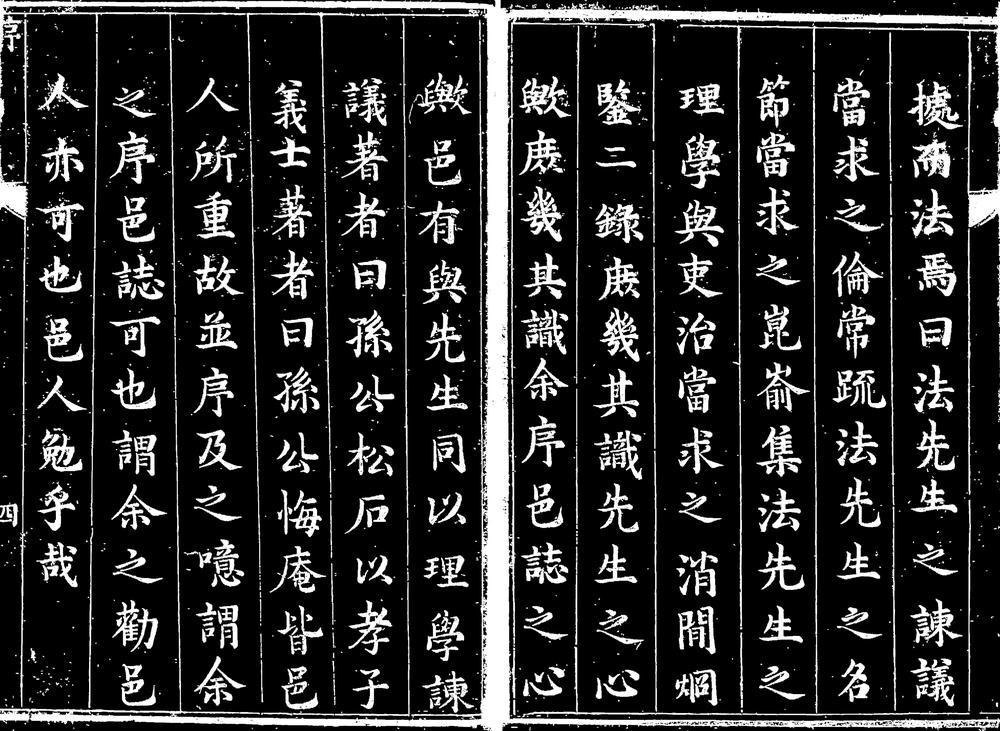 據而法焉曰法先生之諫議
當求之倫常疏法先生之名
節當求之崑崙集法先生之
理學與吏治當求之消閒烱
鑒二錄庶幾其識先生之心
歟庶幾其識余序邑誌之心
歟邑有與先生同以理學諫
議著者曰孫公松石以孝子
義士著者曰孫公悔庵皆邑
人所重故並序及之噫謂余
之序邑誌可也謂余之勸邑
人亦可也邑人勉乎哉
序
四